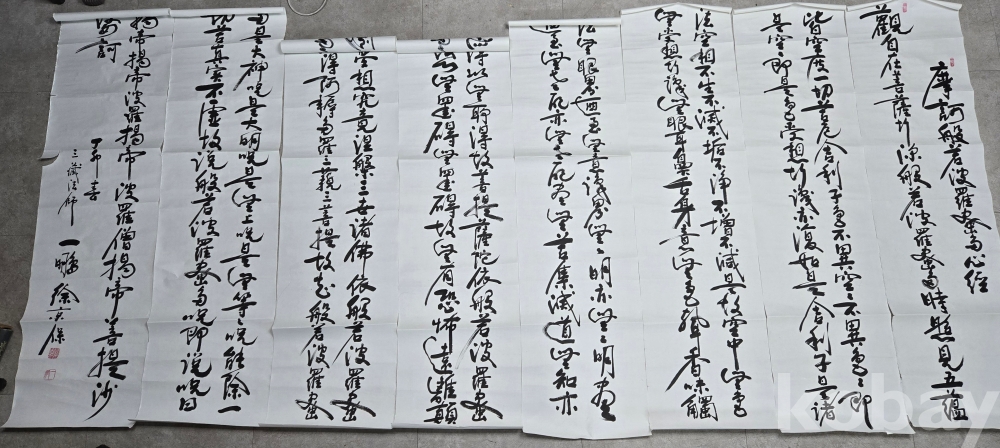 摩訶般若波羅蜜多心経
觀自在菩薩行深般若波羅蜜多時照見五蘊
皆空度一切苦厄舎利子色不異空々不異色々即
是空々即是色受想行識亦復如是舎利子是諸
法空相不生不滅不垢不浄不増不減是故空中無色
無受想行識無眼耳鼻舌身意無色声香味觸
法無眼界乃至無意識界無無明亦無無明盡
乃至無老死亦無老死盡無苦集滅道無知亦
無得以無所得故菩提薩陀依般若波羅蜜
多故心無罣碍無罣碍故無有恐怖遠離顛
倒夢想究竟涅槃三世諸佛依般若波羅蜜
多得阿耨多羅三藐三菩提故知般若波羅蜜
多是大神呪是大明呪是無上呪是無等呪能除一
切苦真実不虚故説般若波羅蜜多呪即説呪曰
揭帝揭帝波羅揭帝波羅僧揭帝菩提沙
婆訶
丁卯春
三藏法師 一鵬 徐京保
kobay